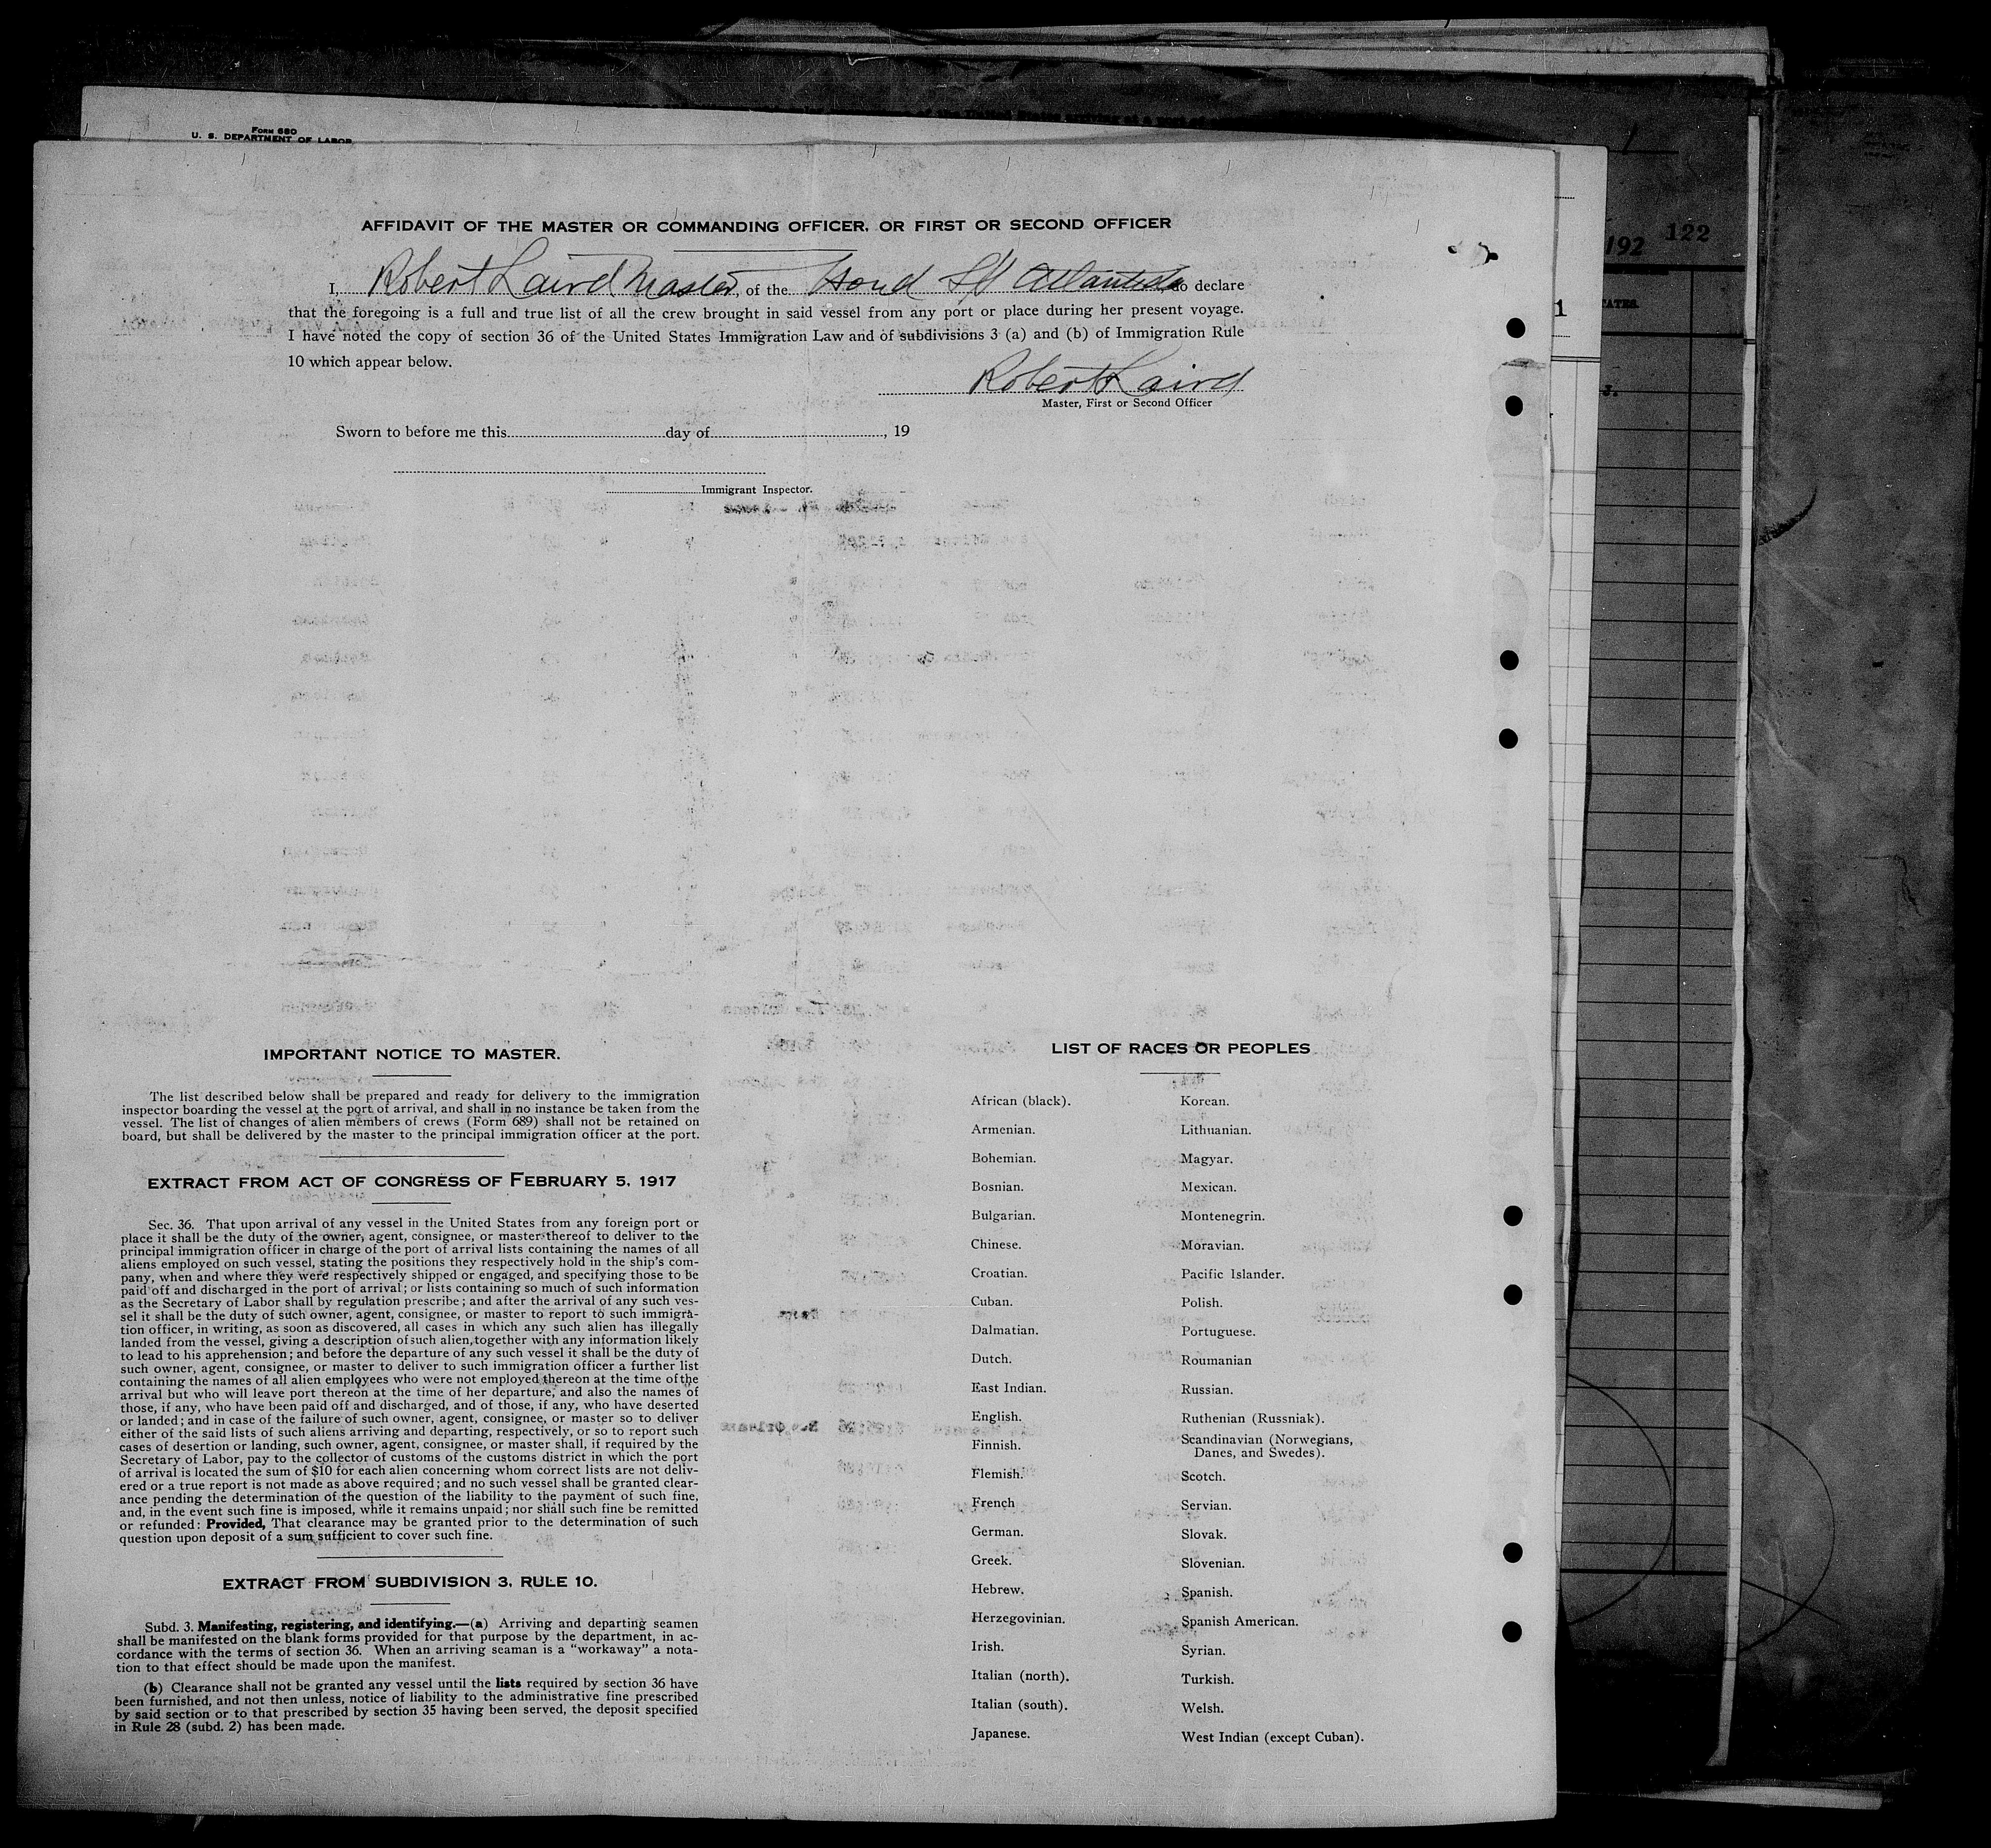 Form 680
U. S. DEPARTMENT OF LABOR
192 122
TATES.
1
AFFIDAVIT OF THE MASTER OR COMMANDING OFFICER, OR FIRST OR SECOND OFFICER
I, Robert Laird Master, of the Hond S/S Atlantida do declare
that the foregoing is a full and true list of all the crew brought in said vessel from any port or place during her present voyage.
I have noted the copy of section 36 of the United States Immigration Law and of subdivisions 3 (a) and (b) of Immigration Rule
10 which appear below.
Robert Laird
Master, First or Second Officer
Sworn to before me this day of , 19
Immigrant Inspector.
IMPORTANT NOTICE TO MASTER.
The list described below shall be prepared and ready for delivery to the immigration
inspector boarding the vessel at the port of arrival, and shall in no instance be taken from the
vessel. The list of changes of alien members of crews (Form 689) shall not be retained on
board, but shall be delivered by the master to the principal immigration officer at the port.
EXTRACT FROM ACT OF CONGRESS OF FEBRUARY 5, 1917
Sec. 36. That upon arrival of any vessel in the United States from any foreign port or
place it shall be the duty of the owner, agent, consignee, or master thereof to deliver to the
principal immigration officer in charge of the port of arrival lists containing the names of all
aliens employed on such vessel, stating the positions they respectively hold in the ship's com-
pany, when and where they were respectively shipped or engaged, and specifying those to be
paid off and discharged in the port of arrival; or lists containing so much of such information
as the Secretary of Labor shall by regulation prescribe; and after the arrival of any such ves-
sel it shall be the duty of such owner, agent, consignee, or master to report to such immigra-
tion officer, in writing, as soon as discovered, all cases in which any such alien has illegally
landed from the vessel, giving a description of such alien, together with any information likely
to lead to his apprehension; and before the departure of any such vessel it shall be the duty of
such owner, agent, consignee, or master to deliver to such immigration officer a further list
containing the names of all alien employees who were not employed thereon at the time of the
arrival but who will leave port thereon at the time of her departure, and also the names of
those, if any, who have been paid off and discharged, and of those, if any, who have deserted
or landed; and in case of the failure of such owner, agent, consignee, or master so to deliver
either of the said lists of such aliens arriving and departing, respectively, or so to report such
cases of desertion or landing, such owner, agent, consignee, or master shall, if required by the
Secretary of Labor, pay to the collector of customs of the customs district in which the port
of arrival is located the sum of $10 for each alien concerning whom correct lists are not deliv-
ered or a true report is not made as above required; and no such vessel shall be granted clear-
ance pending the determination of the question of the liability to the payment of such fine,
and, in the event such fine is imposed, while it remains unpaid; nor shall such fine be remitted
or refunded: Provided, That clearance may be granted prior to the determination of such
question upon deposit of a sum sufficient to cover such fine.
EXTRACT FROM SUBDIVISION 3, RULE 10.
Subd. 3. Manifesting, registering, and identifying.—(a) Arriving and departing seamen
shall be manifested on the blank forms provided for that purpose by the department, in ac-
cordance with the terms of section 36. When an arriving seaman is a "workaway" a nota-
tion to that effect should be made upon the manifest.
(b) Clearance shall not be granted any vessel until the lists required by section 36 have
been furnished, and not then unless, notice of liability to the administrative fine prescribed
by said section or to that prescribed by section 35 having been served, the deposit specified
in Rule 28 (subd. 2) has been made.
LIST OF RACES OR PEOPLES
African (black).
Armenian.
Bohemian.
Bosnian.
Bulgarian.
Chinese.
Croatian.
Cuban.
Dalmatian.
Dutch.
East Indian.
English.
Finnish.
Flemish.
French
German.
Greek.
Hebrew.
Herzegovinian.
Irish.
Italian (north).
Italian (south).
Japanese.
Korean.
Lithuanian.
Magyar.
Mexican.
Montenegrin.
Moravian.
Pacific Islander.
Polish.
Portuguese.
Roumanian
Russian.
Ruthenian (Russniak).
Scandinavian (Norwegians,
Danes, and Swedes).
Scotch.
Servian.
Slovak.
Slovenian.
Spanish.
Spanish American.
Syrian.
Turkish.
Welsh.
West Indian (except Cuban).